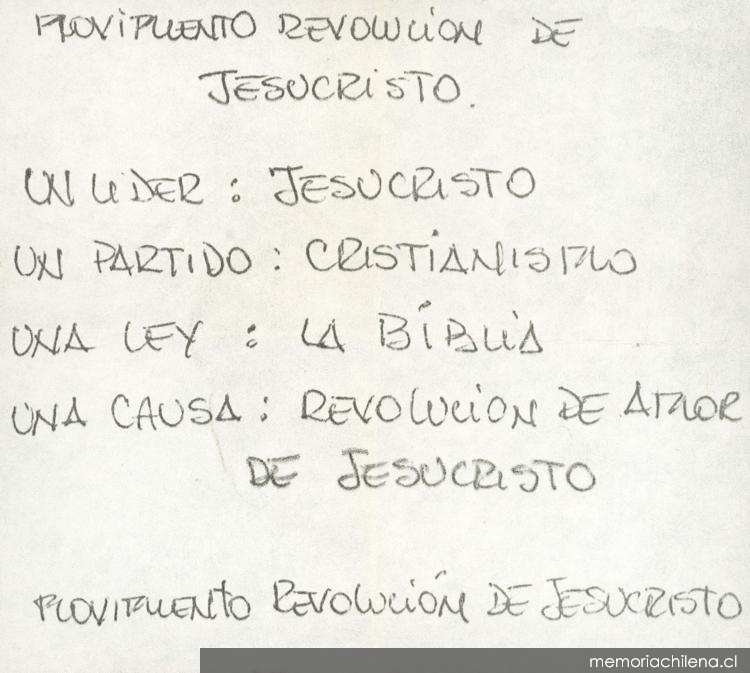 MOVIMIENTO REVOLUCION DE
JESUCRISTO.
UN LIDER : JESUCRISTO
UN PARTIDO : CRISTIANISMO
UNA LEY : LA BIBLIA
UNA CAUSA : REVOLUCION DE AMOR
DE JESUCRISTO
MOVIMIENTO REVOLUCIÓN DE JESUCRISTO
memoriachilena.cl